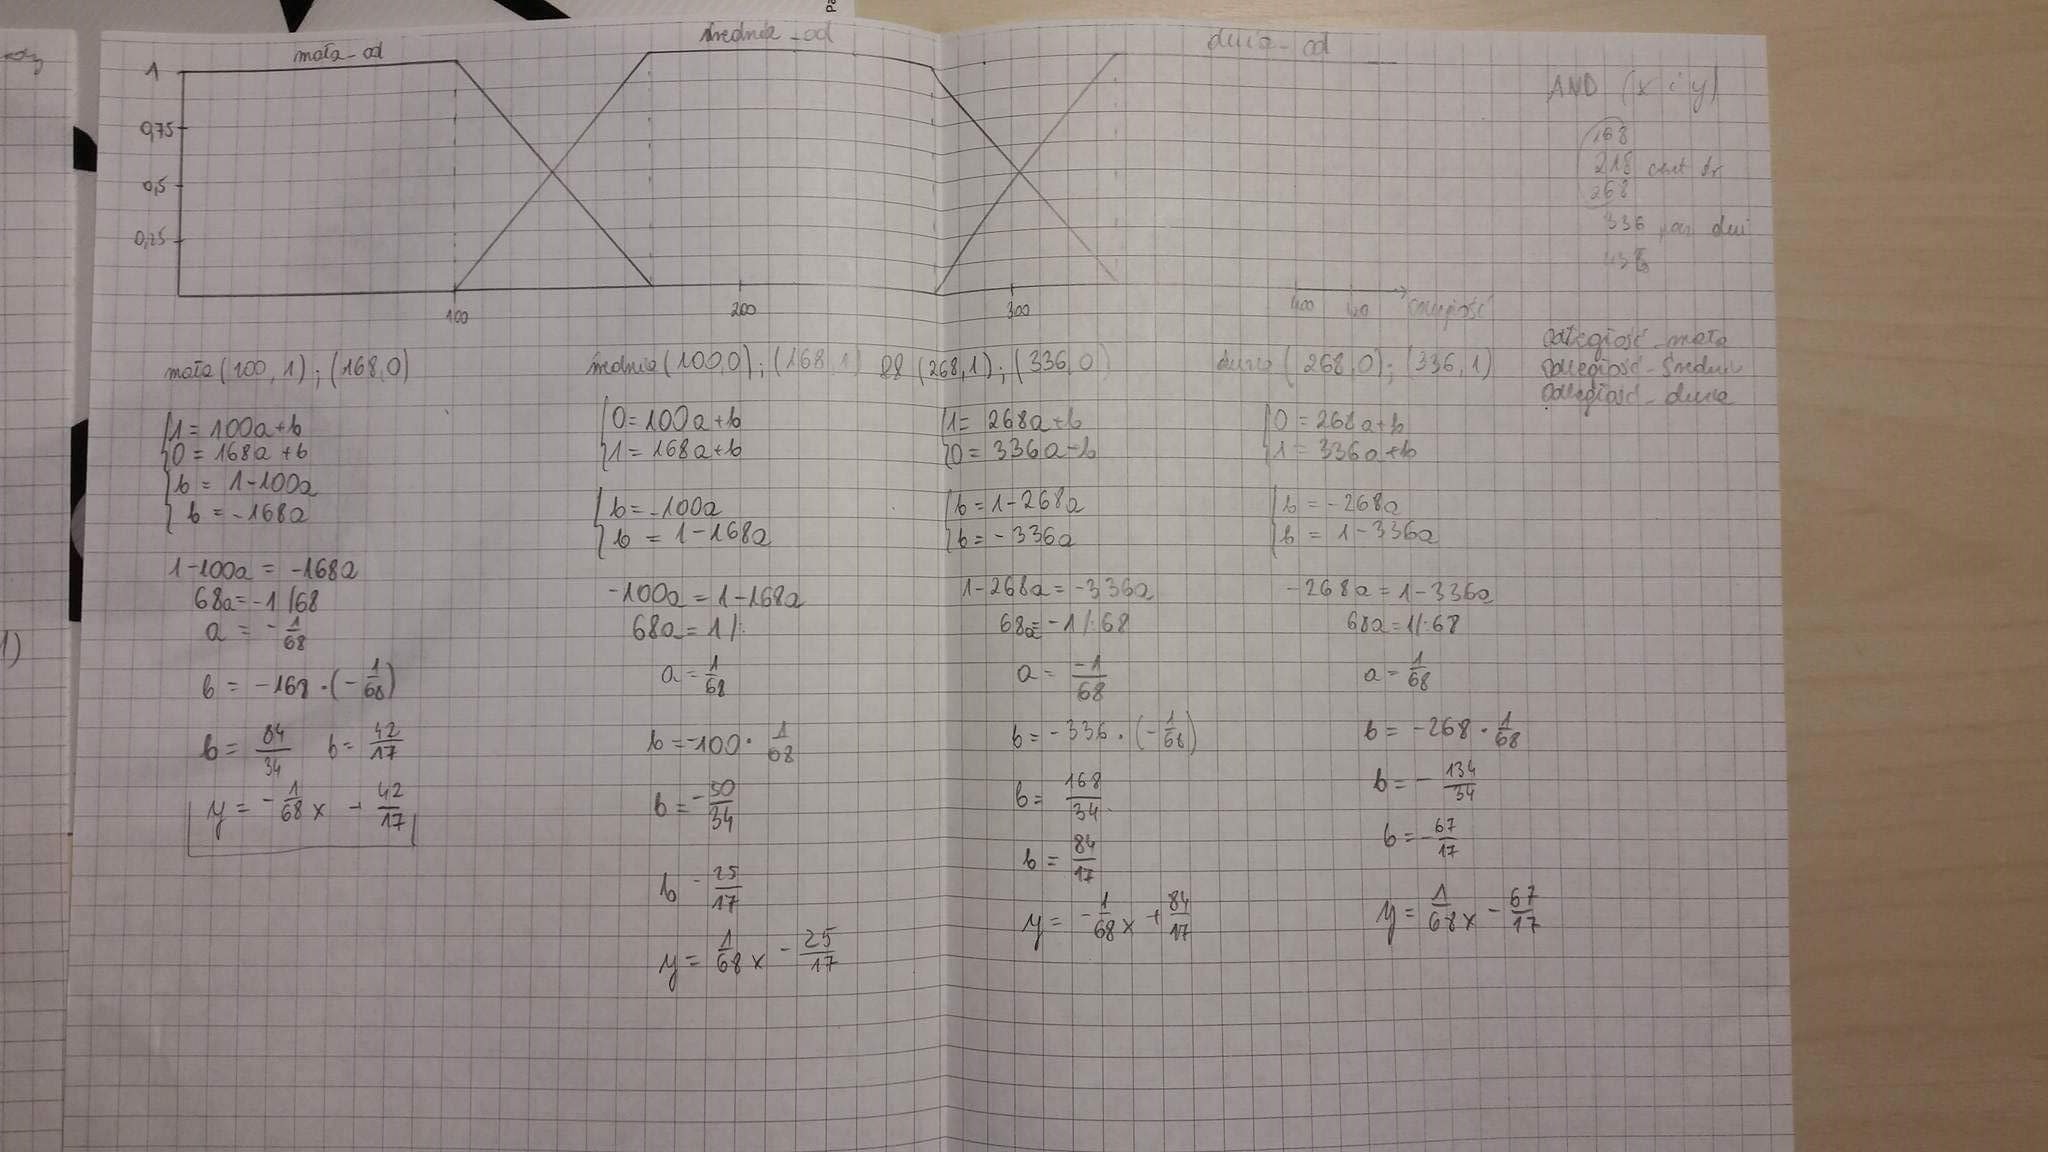 mała-od
średnia-od
duża-od
1
0,75
0,5
0,25
100
200
300
400
AND (x i y)
168
218
268
336
odległość-mała
odległość-średnia
odległość-duża
mała (100, 1); (168, 0)
{1 = 100a+b
{0 = 168a+b
{b = 1-100a
{b = -168a
1-100a = -168a
68a = -1 /68
a = -1/68
b = -168·(-1/68)
b = 84/34 b = 42/17
y = -1/68 x + 42/17
średnia (100,0); (168,1)
{0=100a+b
{1=168a+b
{b = -100a
{b = 1-168a
-100a = 1-168a
68a = 1 /:
a = 1/68
b = -100· 1/68
b = -50/34
b - 25/17
y = 1/68 x - 25/17
(268,1); (336,0)
{1= 268a+b
{0= 336a+b
{b = 1-268a
{b = -336a
1-268a = -336a
68a = -1 /:68
a = -1/68
b = -336·(-1/68)
b = 168/34
b = 84/17
y = -1/68 x + 84/17
duża (268,0); (336,1)
{0 = 268a+b
{1 = 336a+b
{b = -268a
{b = 1-336a
-268a = 1-336a
68a = 1/:68
a = 1/68
b = -268· 1/68
b = - 134/34
b = - 67/17
y = 1/68 x - 67/17